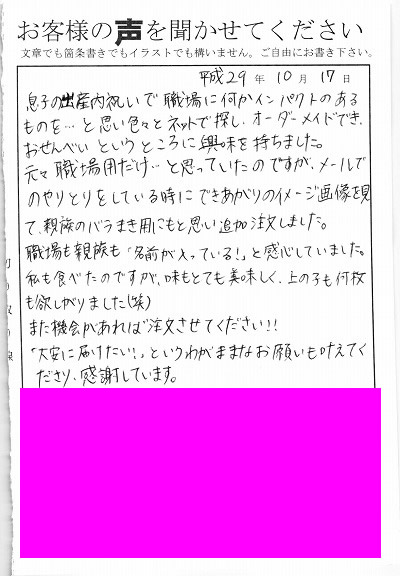 お客様の声を聞かせてください
文章でも箇条書きでもイラストでも構いません。ご自由にお書き下さい。
平成29年10月17日
息子の出産内祝いで職場に何かインパクトのある
ものを…と思い色々とネットで探し、オーダーメイドでき、
おせんべいというところに興味を持ちました。
元々職場用だけ…と思っていたのですが、メールで
のやりとりをしている時にできあがりのイメージ画像を見
て、親族のバラまき用にもと思い追加注文しました。
職場も親族も「名前が入っている!」と感心していました。
私も食べたのですが、味もとても美味しく、上の子も何枚
も欲しがりました(笑)
また機会があれば注文させてください!!
「大安に届けたい!」というわがままなお願いも叶えてく
ださり、感謝しています。